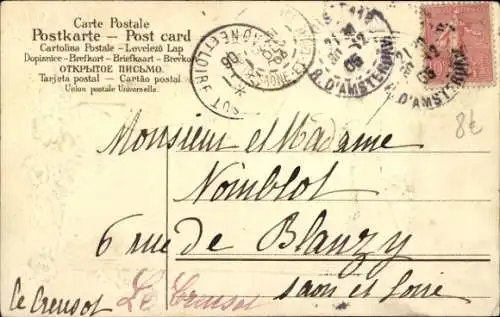 Carte Postale
Postkarte — Post card
Cartolina Postale — Levelező Lap
Dopisnice — Brefkort — Briefkaart — Brevkort
ОТКРЫТОЕ ПИСЬМО.
Tarjeta postal — Cartão postal
Union postale Universelle.
R. D'AMSTERDAM
R. D'AMSTERDAM
8€
Monsieur et Madame
Noinblot
6 rue de Blanzy
Le Creusot
Le Creusot
Saon et Loire